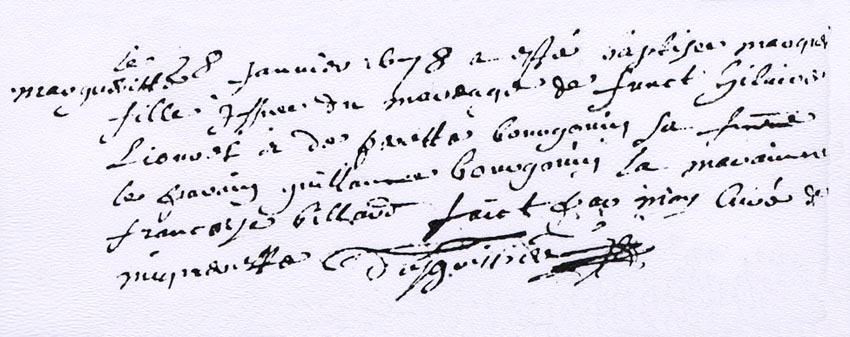 le 28 Janvier 1678 a esté baptisee margueritte
fille yssue du mareage de sainct hilaire
Lionnet & de perette bourgouin sa femme
le parain guillaume bourgouin la maraine
francoise billard faict par moy Curé de